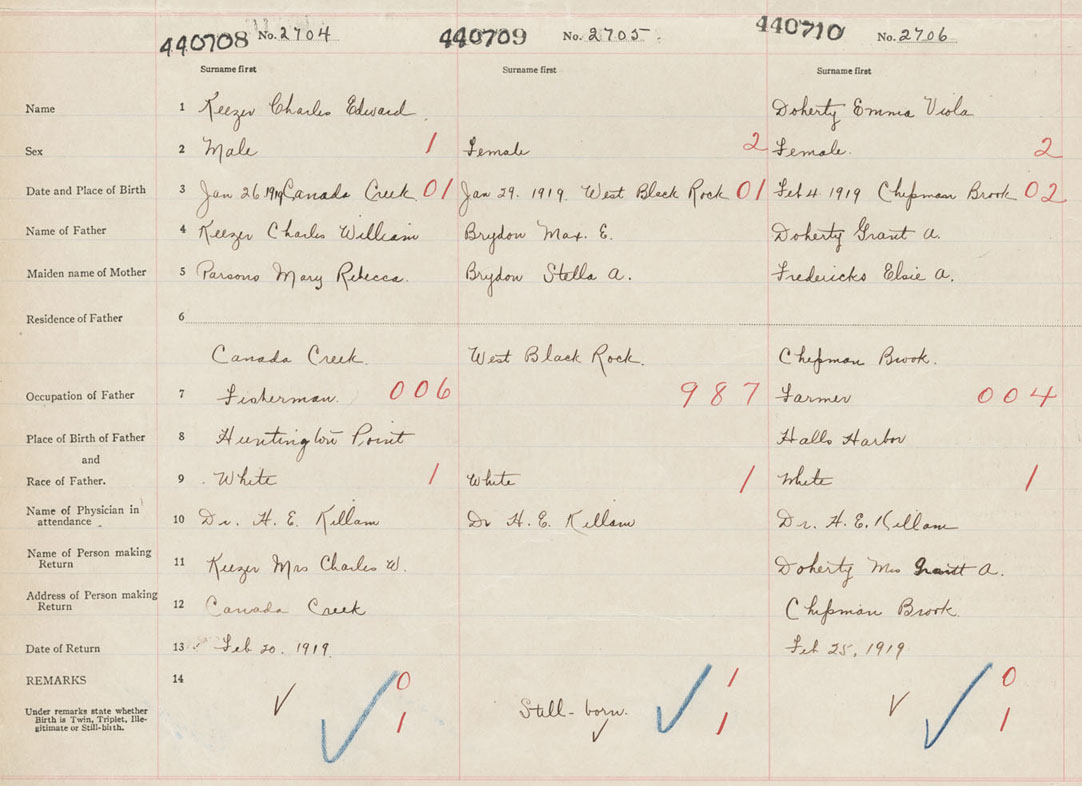 440708 No. 2704 440709 No. 2705 440710 No. 2706
Surname first Surname first Surname first
Name 1 Keezer Charles Edward Doherty Emma Viola
Sex 2 Male 1 Female 2 Female. 2
Date and Place of Birth 3 Jan 26 1919 Canada Creek 01 Jan 29. 1919. West Black Rock 01 Feb 4. 1919 Chipman Brook 02
Name of Father 4 Keezer Charles William Brydon Max. E. Doherty Grant A.
Maiden name of Mother 5 Parsons Mary Rebecca. Brydon Stella A. Fredericks Elsie A.
Residence of Father 6
Canada Creek. West Black Rock. Chipman Brook.
Occupation of Father 7 Fisherman. 006 987 Farmer 004
Place of Birth of Father 8 Huntington Point Halls Harbor
and
Race of Father. 9 White 1 White 1 White 1
Name of Physician in
attendance 10 Dr. H. E. Killam Dr H. E. Killam Dr. H. E. Killam
Name of Person making
Return 11 Keezer Mrs Charles W. Doherty Mrs Grant A.
Address of Person making
Return 12 Canada Creek Chipman Brook
Date of Return 13 Feb 20. 1919. Feb 25, 1919
REMARKS 14 0 1 0
Under remarks state whether
Birth is Twin, Triplet, Ille-
gitimate or Still-birth.
Still-born.
1 1 1